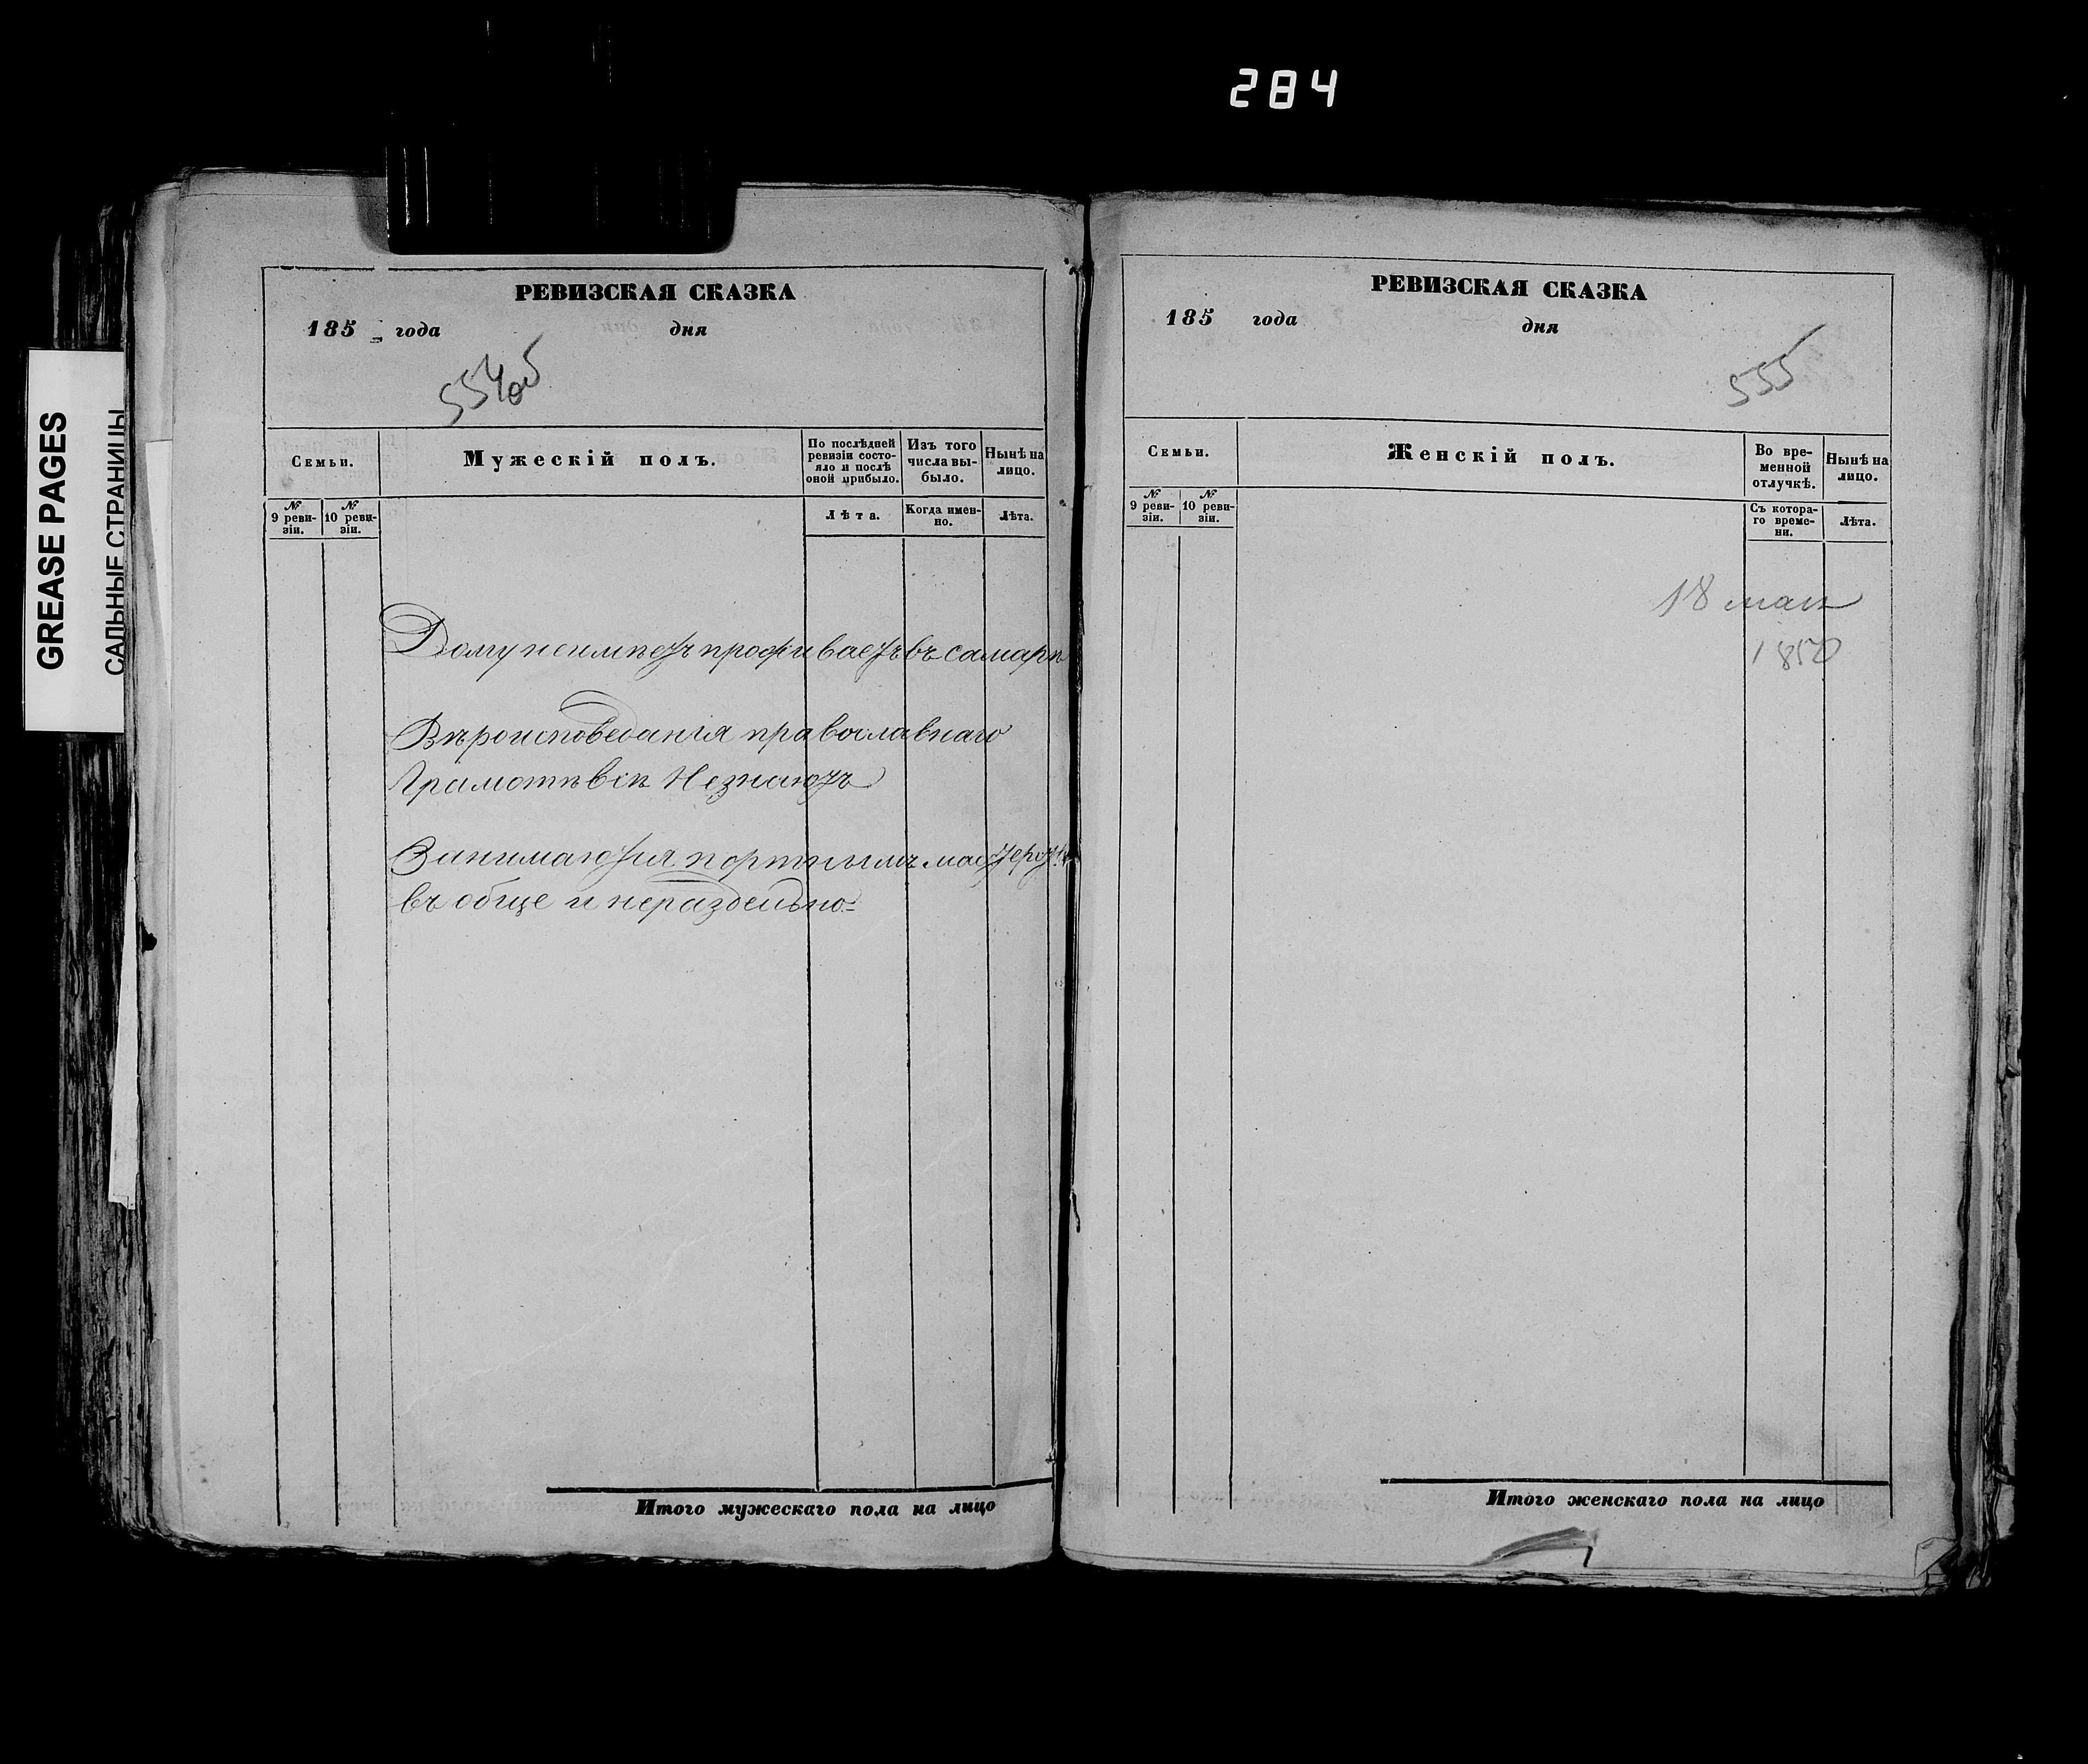 284
GREASE PAGES
САЛЬНЫЕ СТРАНИЦЫ
РЕВИЗСКАЯ СКАЗКА
185 года дня
554об
Семьи.
Мужескій полъ.
По послѣдней ревизіи состо-
яло и послѣ
оной прибыло.
Изъ того
числа вы-
было.
Нынѣ на
лицо.
№
9 реви-
зіи.
№
10 реви-
зіи.
Лѣта.
Когда имен-
но.
Лѣта.
Дому неимѣетъ проживаетъ въ самарѣ
Вѣроисповеданія православнаго
Грамотѣ всѣ Незнаютъ
Занимаются портнымъ мастерст
въ обще и нераздельно
Итого мужескаго пола на лицо
РЕВИЗСКАЯ СКАЗКА
185 года дня
555
Семьи.
Женскій полъ.
Во вре-
менной
отлучкѣ.
Нынѣ на
лицо.
№
9 реви-
зіи.
№
10 реви-
зіи.
Съ котора-
го време-
ни.
Лѣта.
18 мая
1850
Итого женскаго пола на лицо